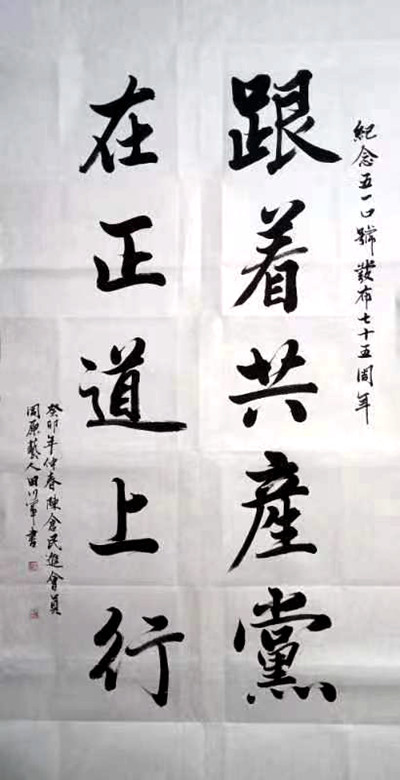 紀念五一口號發布七十五周年
跟着共産黨
在正道上行
癸卯年仲春陳倉民進會員
周原藝人田川軍書